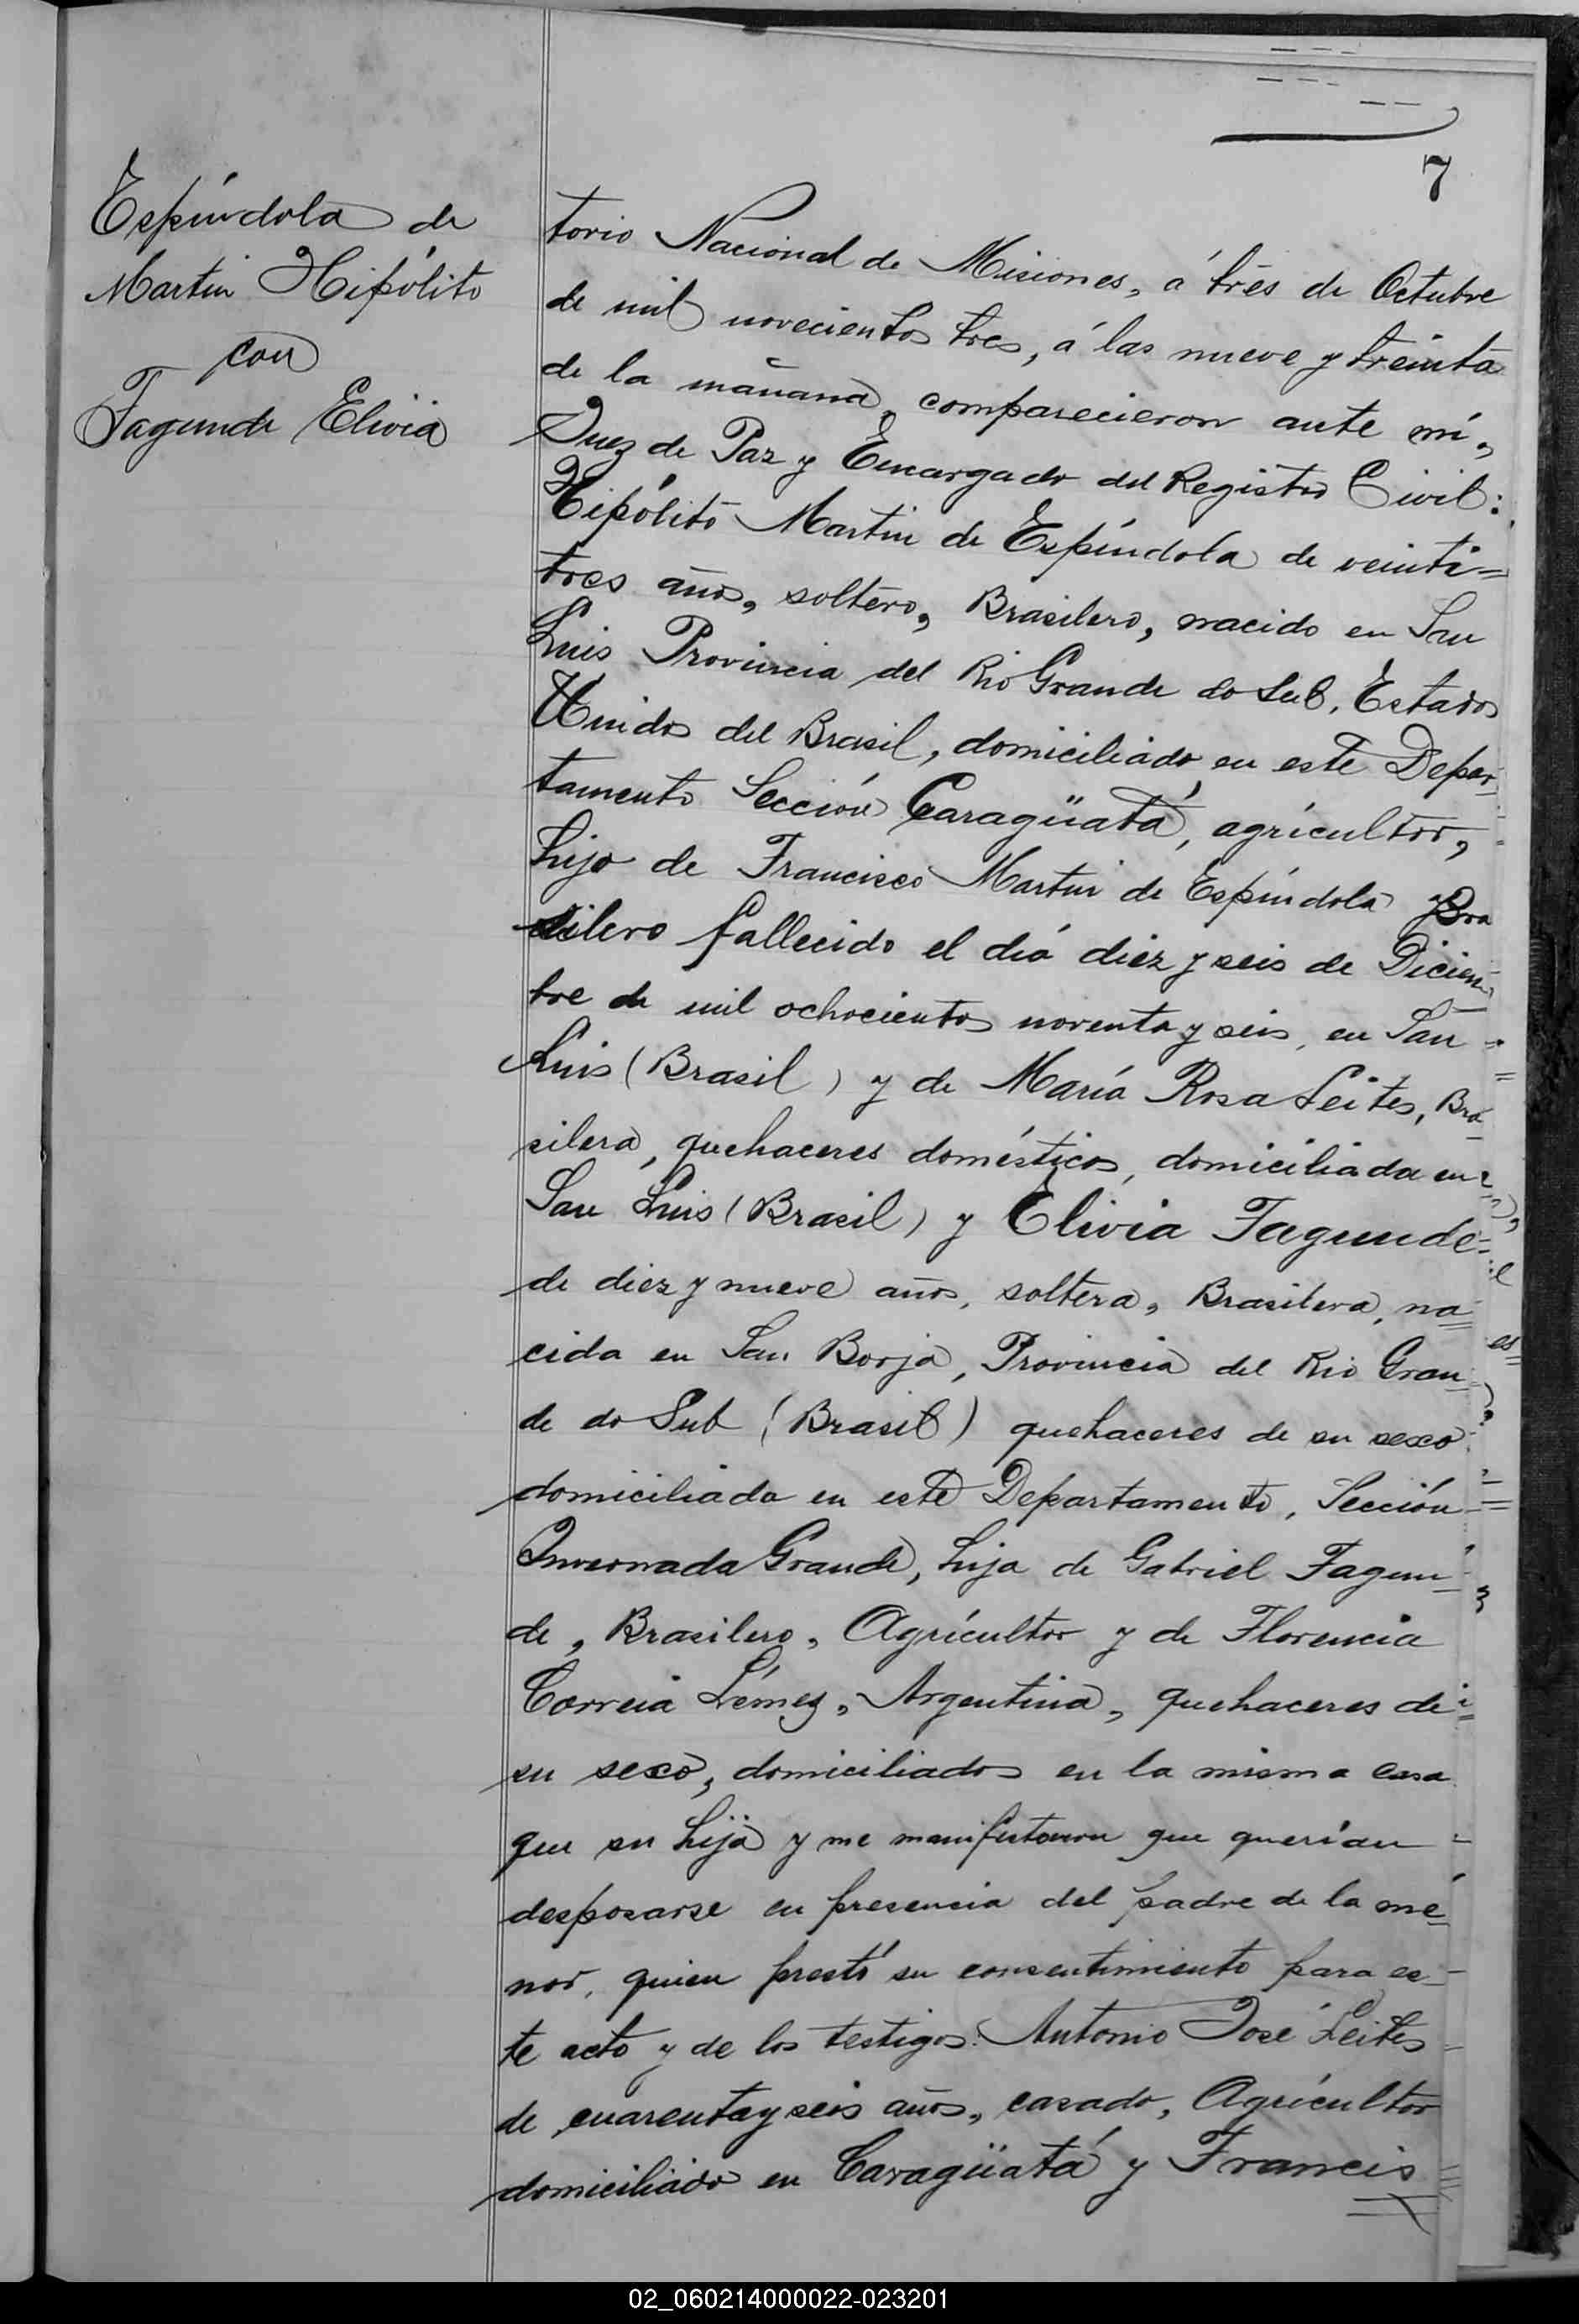 7
Espíndola de
Martin Hipólito
con
Fagunde Elivia
torio Nacional de Misiones, á tres de Octubre
de mil novecientos tres, á las nueve y treinta
de la mañana, comparecieron ante mí,
Juez de Paz y Encargado del Registro Civil:
Hipólito Martin de Espíndola de veinti=
tres años, soltero, Brasilero, nacido en San
Luis Provincia del Rio Grande do Sul, Estados
Unidos del Brasil, domiciliado en este Depar-
tamento Sección Caragüatá, agrícultor,
hijo de Francisco Martin de Espíndola Bra
silero fallecido el día diez y seis de Diciem-
bre de mil ochocientos noventa y seis, en San
Luis (Brasil) y de María Rosa Leites, Bra-
silera, quehaceres domésticos, domiciliada en
San Luis (Brasil) y Elivia Fagunde
de diez y nueve años, soltera, Brasilera, na=
cida en San Borja, Provincia del Rio Gran-
de do Sul (Brasil) quehaceres de su sexo
domiciliada en este Departamento, Sección
Invernada Grande, hija de Gabriel Fagun-
de, Brasilero, Agrícultor y de Florencia
Correia Lémez, Argentina, quehaceres de
su sexo, domiciliados en la misma casa
que su hija y me manifestaron que querían
desposarse en presencia del padre de la me-
nor, quien prestó su consentimiento para es-
te acto y de los testigos: Antonio José Leites
de cuarenta y seis años, casado, Agrícultor
domiciliado en Caragüatá y Francis
02_060214000022-023201